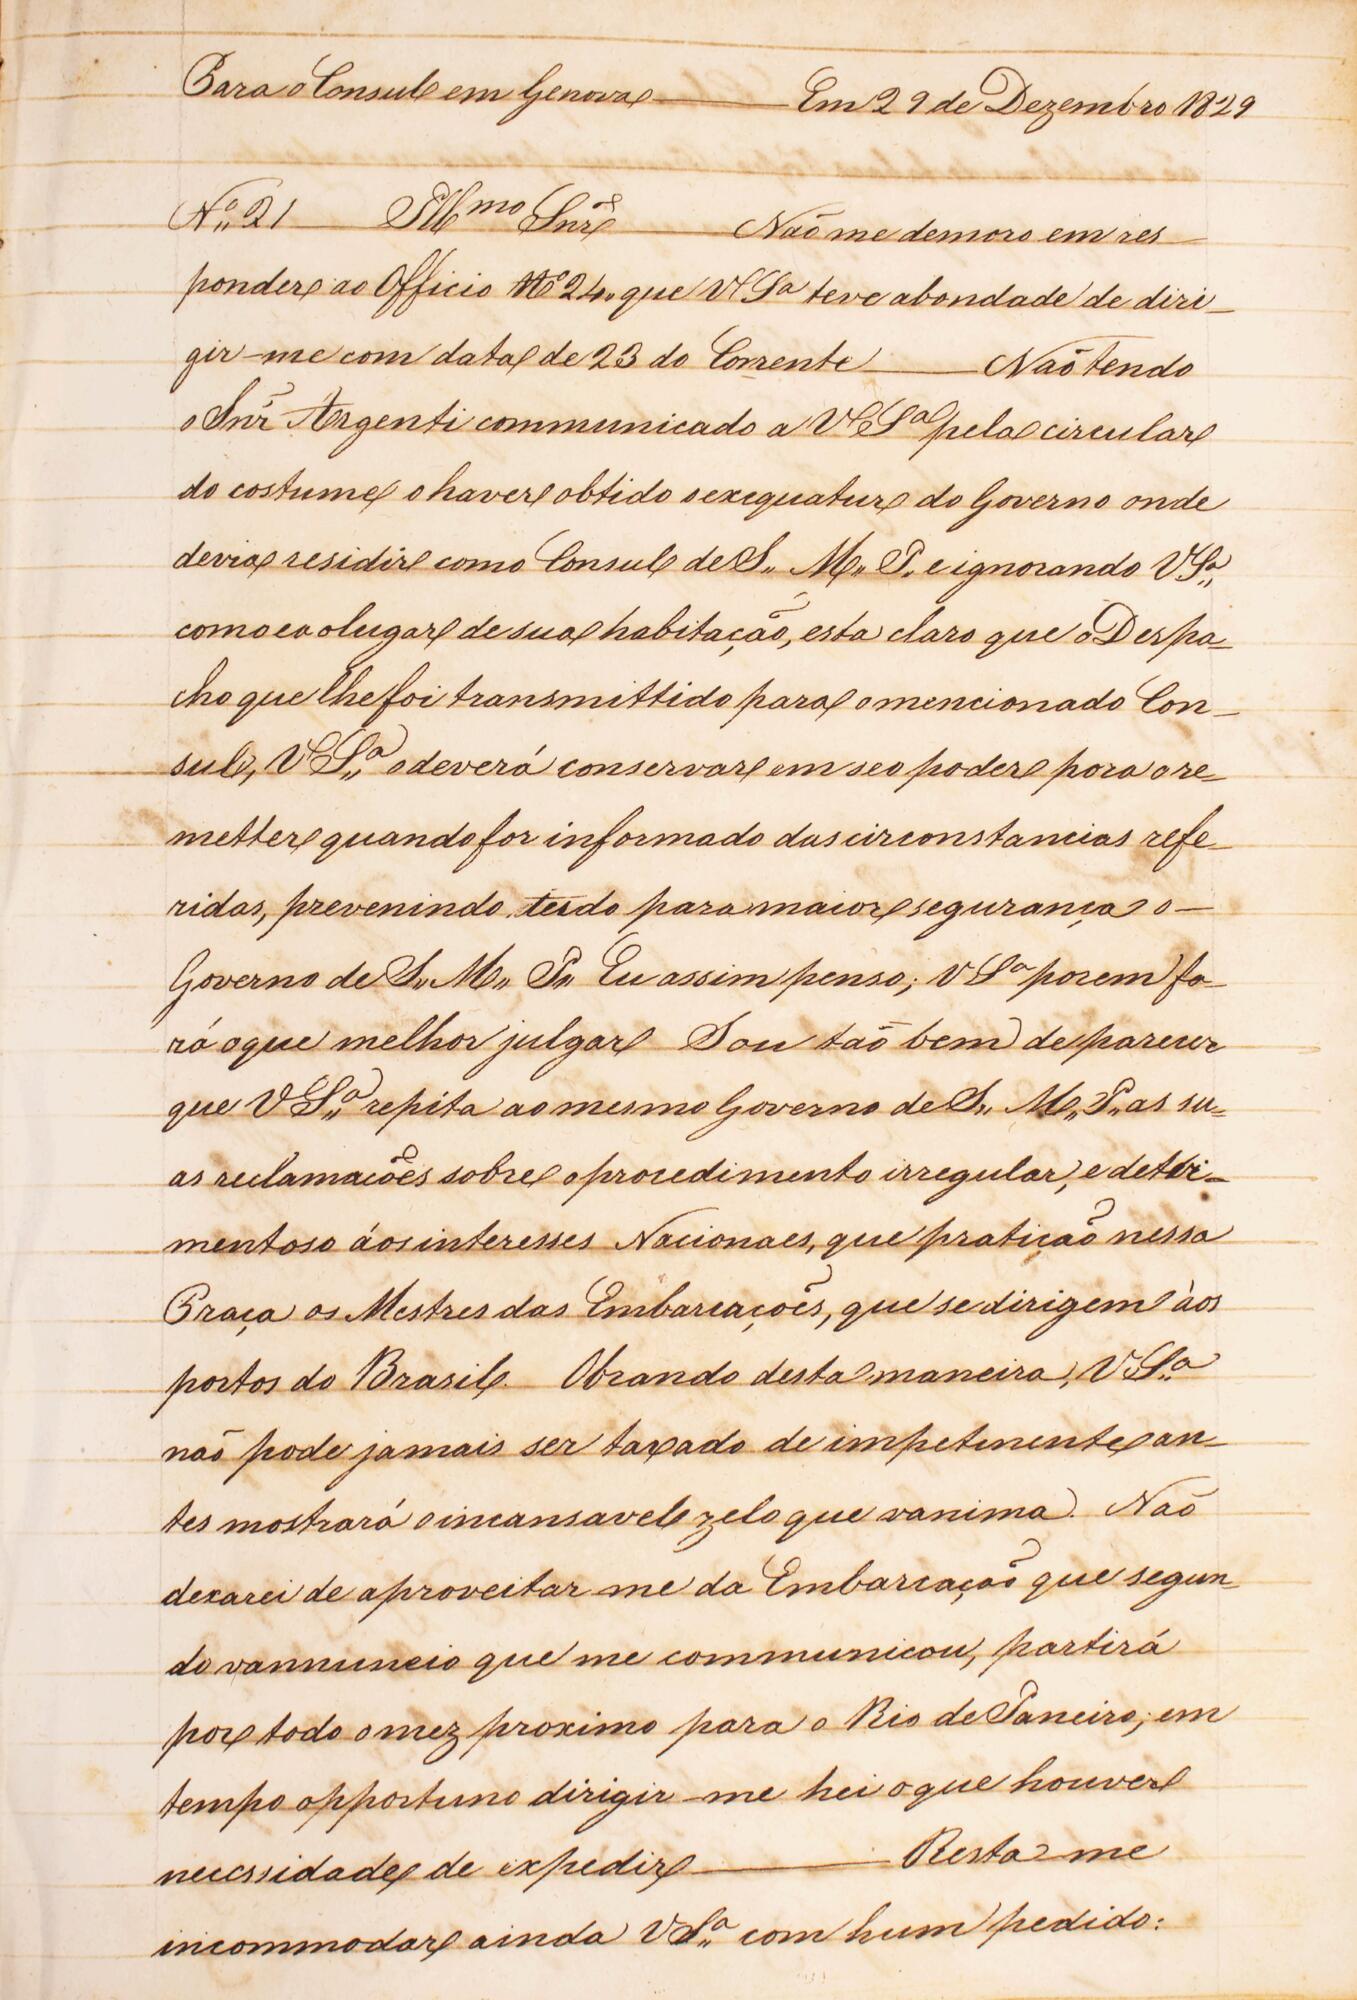 Para o Consul em Genova —— Em 29 de Dezembro 1829
N.º 21 Ill.mo Snr.º —— Naõ me demoro em res
ponder ao Officio N.º 24, que V.ª S.ª teve a bondade de diri-
gir-me com data de 23 do Corrente —— Naõ tendo
o Snr. Argenti communicado a V.ª S.ª pela circular
do costume o haver obtido o exequatur do Governo onde
devia residir como Consul de S. M. I. e ignorando V.S.ª
como eu o lugar de sua habitaçaõ, esta claro que o Despa-
cho que lhe foi transmittido para o mencionado Con-
sul, V.S.ª o deverá conservar em seo poder para o re-
metter quando for informado das circonstancias refe-
ridas, prevenindo tudo para maior segurança o-
Governo de S. M. I. Eu assim penso; V S.ª porem fa-
rá o que melhor julgar Sou taõ bem de parecer
que V S.ª repita ao mesmo Governo de S. M. I. as su-
as reclamacões sobre o procedimento irregular, e detri-
mentoso áos interesses Nacionaes, que praticaõ nessa
Praça os Mestres das Embarcações, que se dirigem áos
portos do Brasil. Obrando desta maneira, V S.ª
naõ pode jamais ser taxado de impetinente an-
tes mostrará o incansavel zelo que o anima. Naõ
dexarei de aproveitar me da Embarcaçaõ que segun-
do o annuncio que me communicou, partirá
por todo o mez proximo para o Rio de Janeiro; em
tempo opportuno dirigir-me hei o que houver
necessidade de expedir —— Resta me
incommodar ainda V S.ª com hum pedido: